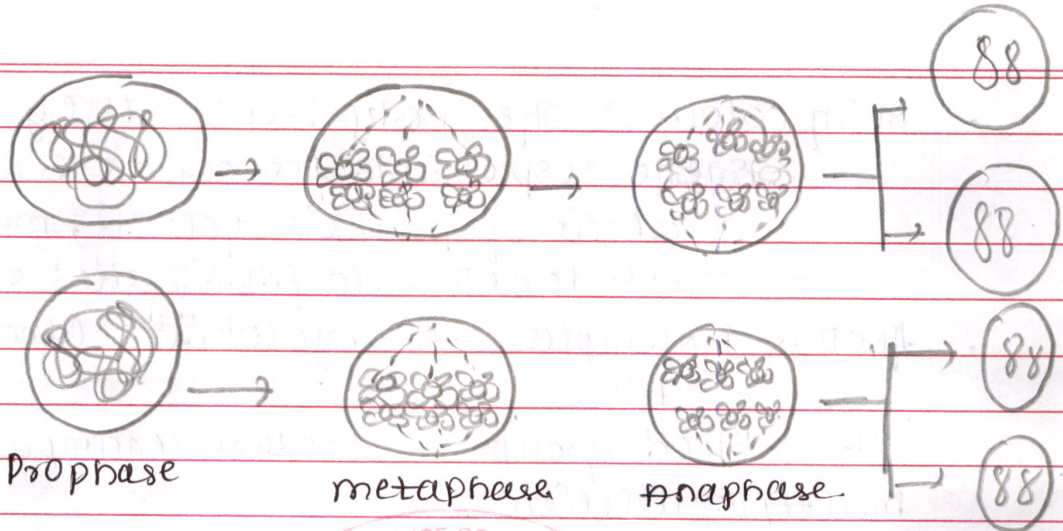 Prophase
metaphase
Anaphase